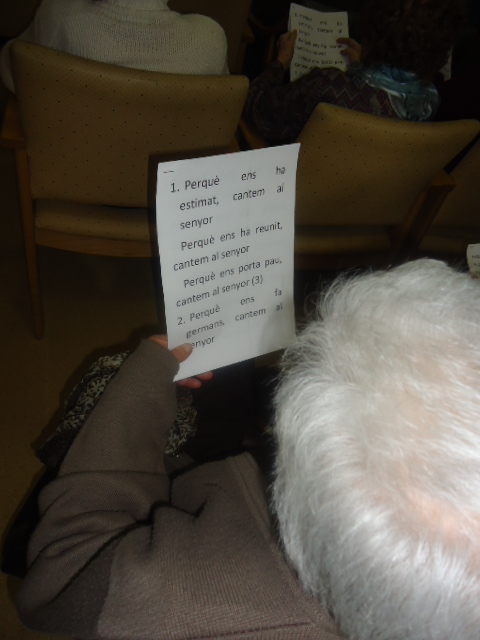 1. Perquè ens ha
estimat, cantem al
senyor
Perquè ens ha reunit,
cantem al senyor
Perquè ens porta pau,
cantem al senyor (3)
2. Perquè ens fa
germans, cantem al
senyor